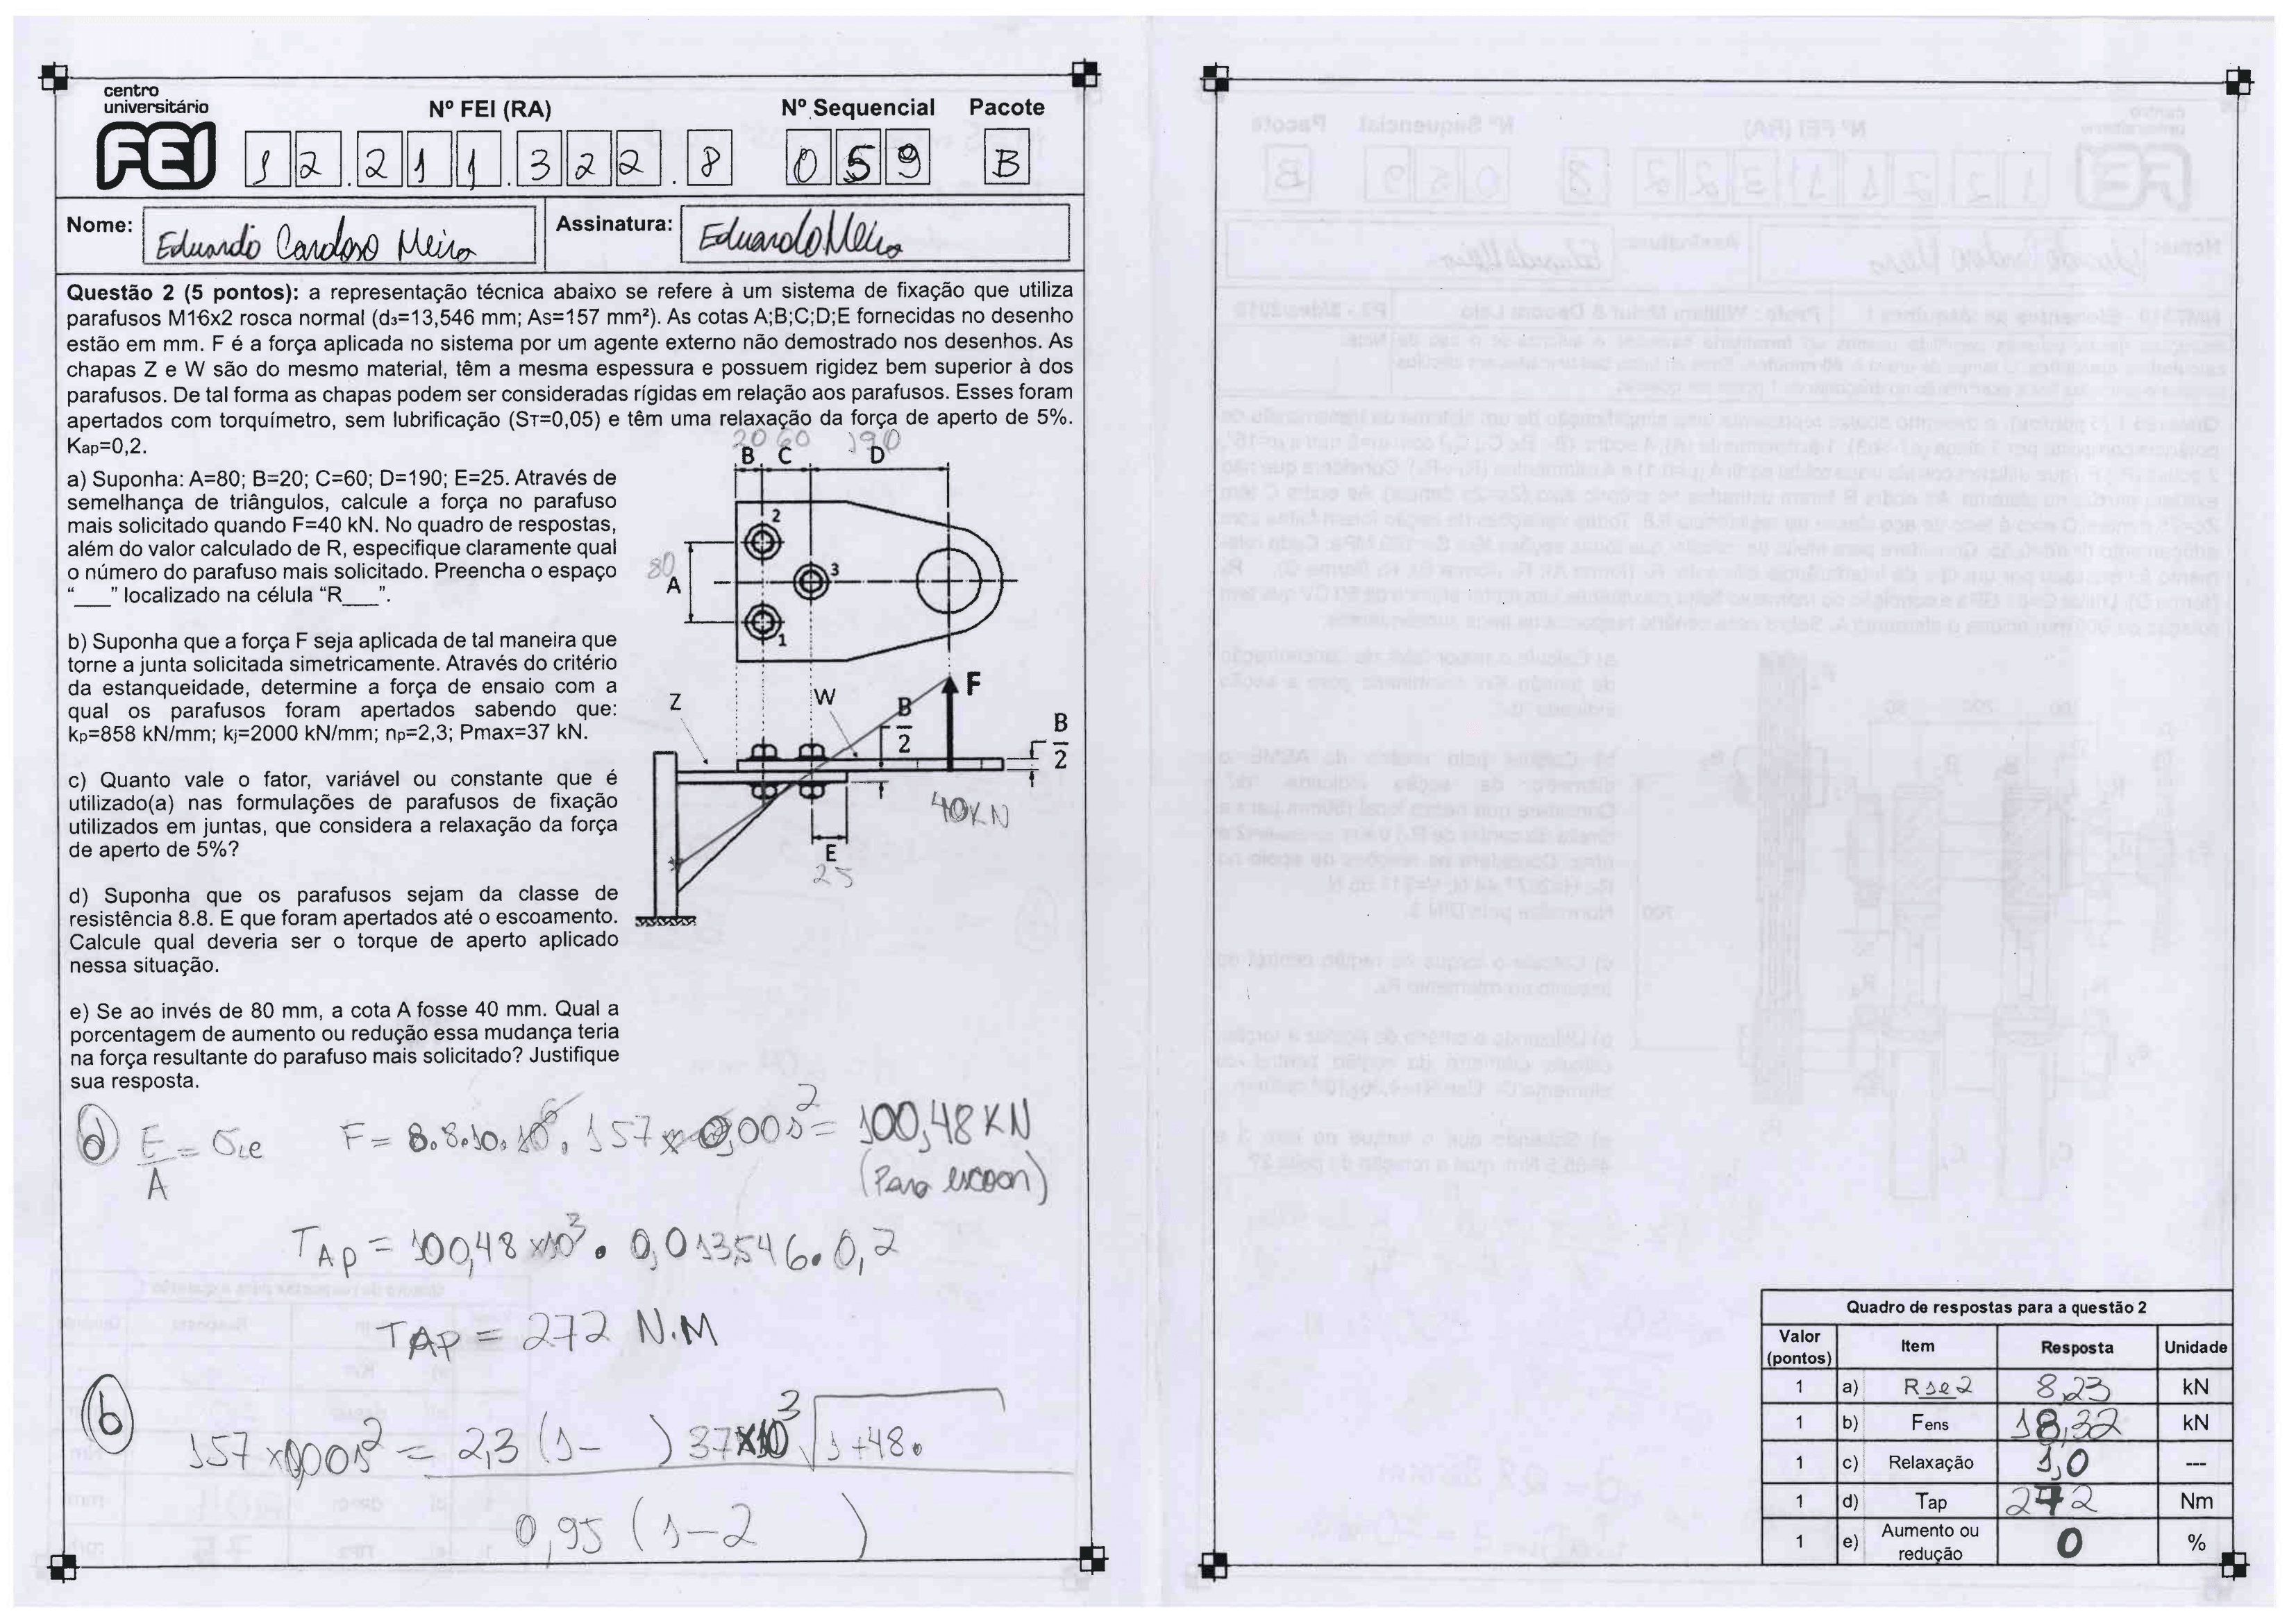 centro
universitário
FEI
Nº FEI (RA)
Nº Sequencial
Pacote
1 2 . 2 1 1 . 3 2 2 . 8
0 5 9
B
Nome: Eduardo Cardoso Meira
Assinatura: Eduardo Meira
Questão 2 (5 pontos): a representação técnica abaixo se refere à um sistema de fixação que utiliza
parafusos M16x2 rosca normal (d₃=13,546 mm; As=157 mm²). As cotas A;B;C;D;E fornecidas no desenho
estão em mm. F é a força aplicada no sistema por um agente externo não demostrado nos desenhos. As
chapas Z e W são do mesmo material, têm a mesma espessura e possuem rigidez bem superior à dos
parafusos. De tal forma as chapas podem ser consideradas rígidas em relação aos parafusos. Esses foram
apertados com torquímetro, sem lubrificação (Sт=0,05) e têm uma relaxação da força de aperto de 5%.
Kap=0,2.
a) Suponha: A=80; B=20; C=60; D=190; E=25. Através de
semelhança de triângulos, calcule a força no parafuso
mais solicitado quando F=40 kN. No quadro de respostas,
além do valor calculado de R, especifique claramente qual
o número do parafuso mais solicitado. Preencha o espaço
"___" localizado na célula "R___".
b) Suponha que a força F seja aplicada de tal maneira que
torne a junta solicitada simetricamente. Através do critério
da estanqueidade, determine a força de ensaio com a
qual os parafusos foram apertados sabendo que:
kp=858 kN/mm; kj=2000 kN/mm; np=2,3; Pmax=37 kN.
c) Quanto vale o fator, variável ou constante que é
utilizado(a) nas formulações de parafusos de fixação
utilizados em juntas, que considera a relaxação da força
de aperto de 5%?
d) Suponha que os parafusos sejam da classe de
resistência 8.8. E que foram apertados até o escoamento.
Calcule qual deveria ser o torque de aperto aplicado
nessa situação.
e) Se ao invés de 80 mm, a cota A fosse 40 mm. Qual a
porcentagem de aumento ou redução essa mudança teria
na força resultante do parafuso mais solicitado? Justifique
sua resposta.
20 60 190
B C D
2
80
A
3
1
Z
W
F
B
2
B
2
40KN
E
25
d) F/A = σLe F = 8.8.10.10⁶. 157 x 0,001² = 100,48 KN
(Para escoar)
TAp = 100,48 x10³ . 0,013546 . 0,2
TAP = 272 N.M
b) 157 x0,001² = 2,3 (1- ) 37x10³ √1+48.
0,95 (1-2 )
Quadro de respostas para a questão 2
Valor (pontos) Item Resposta Unidade
1 a) R 1 e 2 8,23 kN
1 b) Fens 18,32 kN
1 c) Relaxação 1,0 ---
1 d) Tap 272 Nm
1 e) Aumento ou redução 0 %